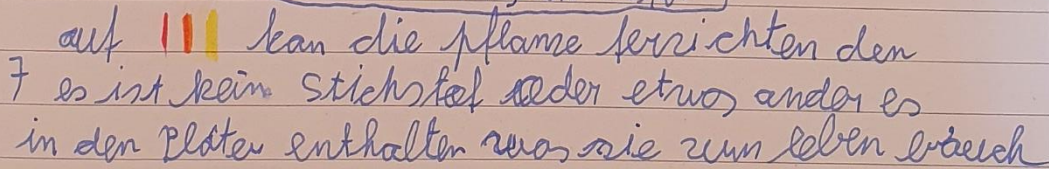 auf kan die pflanze ferzichten den
7 es ist kein stichstof oder etwas anderes
in den Pläter enthalten was sie zum leben brauch